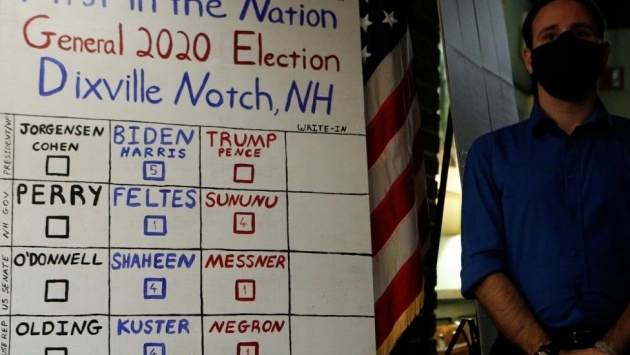 First in the Nation
General 2020 Election
Dixville Notch, NH
PRESIDENT/VP
JORGENSEN
COHEN
BIDEN
HARRIS
5
TRUMP
PENCE
WRITE-IN
NH GOV
PERRY
FELTES
1
SUNUNU
4
US SENATE
O'DONNELL
SHAHEEN
4
MESSNER
1
USE REP
OLDING
KUSTER
4
NEGRON
1